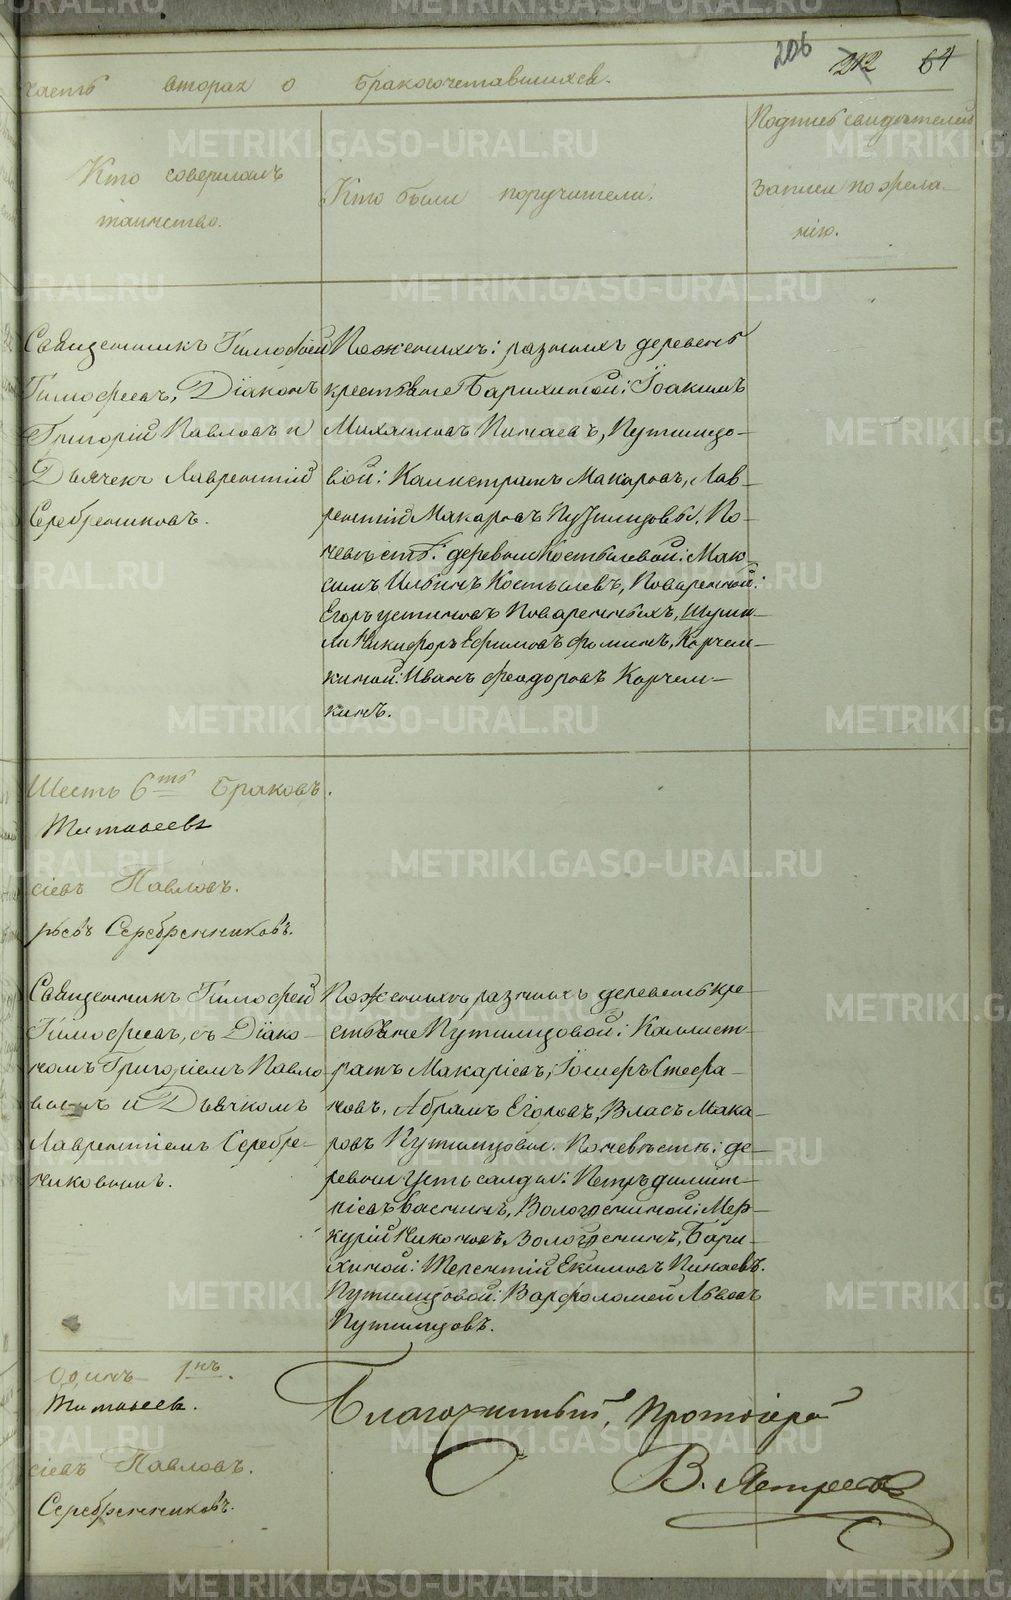 206 212 64
часть вторая о бракосочетавшихся.
Кто совершалъ
таинство.
Кто были поручители.
Подпись свидѣтелей
записи по жела-
нію.
Священникъ Тимофей
Тимофеевъ, Діаконъ
Григорій Павловъ и
Дьячекъ Лаврентій
Серебрениковъ.
По женихѣ: разныхъ деревень
крестьяне Барихиной: Іоакимъ
Михайловъ Пинаевъ, Путимцо-
вой: Калистратъ Макаровъ, Лав-
рентій Макаровъ Путимцовы. По
невѣстѣ: деревни Костылевой: Мак-
симъ Ильинъ Костылевъ, Поваренной:
Егоръ Устиновъ Поваренныхъ,
Никифоръ Ефимовъ Фоминъ, Корчем-
киной: Иванъ Феодоровъ Корчем-
кинъ.
Шесть 6ть браковъ.
Павловъ.
Серебренниковъ.
Священникъ Тимофей
Тимофеевъ, съ Діако-
номъ Григоріемъ Павло-
вымъ и Дьячкомъ
Лаврентіемъ Серебре-
никовымъ.
По женихѣ разныхъ деревень кре-
стьяне Путимцовой: Каллист-
ратъ Макаріевъ, Стефа-
новъ, Абрамъ Егоровъ, Власъ Мака-
ровъ Путимцовы. По невѣстѣ: де-
ревни Усть салды: Петръ Димит-
ріевъ Васнинъ, Вологжениной: Мер-
курій Никоновъ Вологженинъ, Бари-
хиной: Терентій Екимовъ Пинаевъ.
Путимцовой: Варфоломей Львовъ
Путимцовъ.
одинъ 1нъ.
Павловъ.
Серебренниковъ.
Благочинный, Протоіерей
В.
METRIKI.GASO-URAL.RU